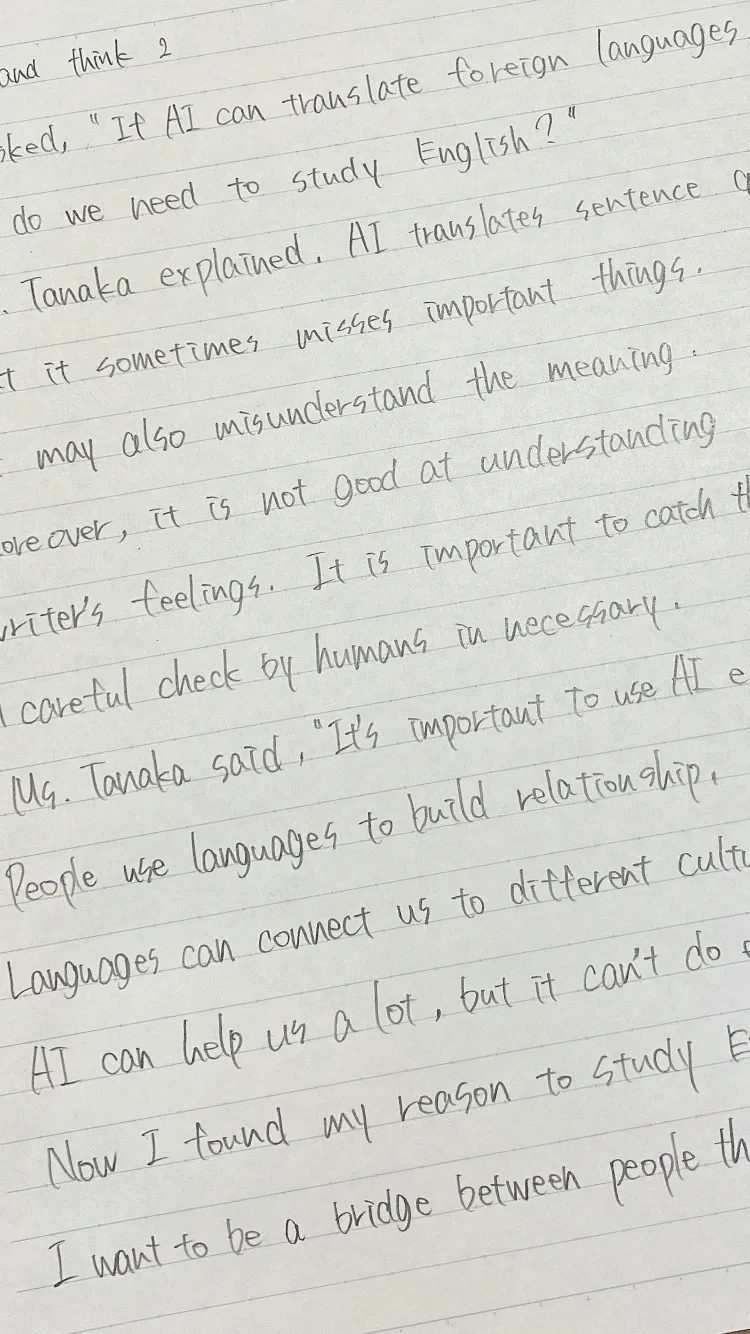 and think 2
"If AI can translate foreign languages
do we need to study English?"
Tanaka explained. AI translates sentence
it sometimes misses important things.
may also misunderstand the meaning.
it is not good at understanding
feelings. It is important to catch
careful check by humans in necessary.
Ms. Tanaka said, "It's important to use AI
People use languages to build relationship.
Languages can connect us to different
AI can help us a lot, but it can't do
Now I found my reason to study
I want to be a bridge between people